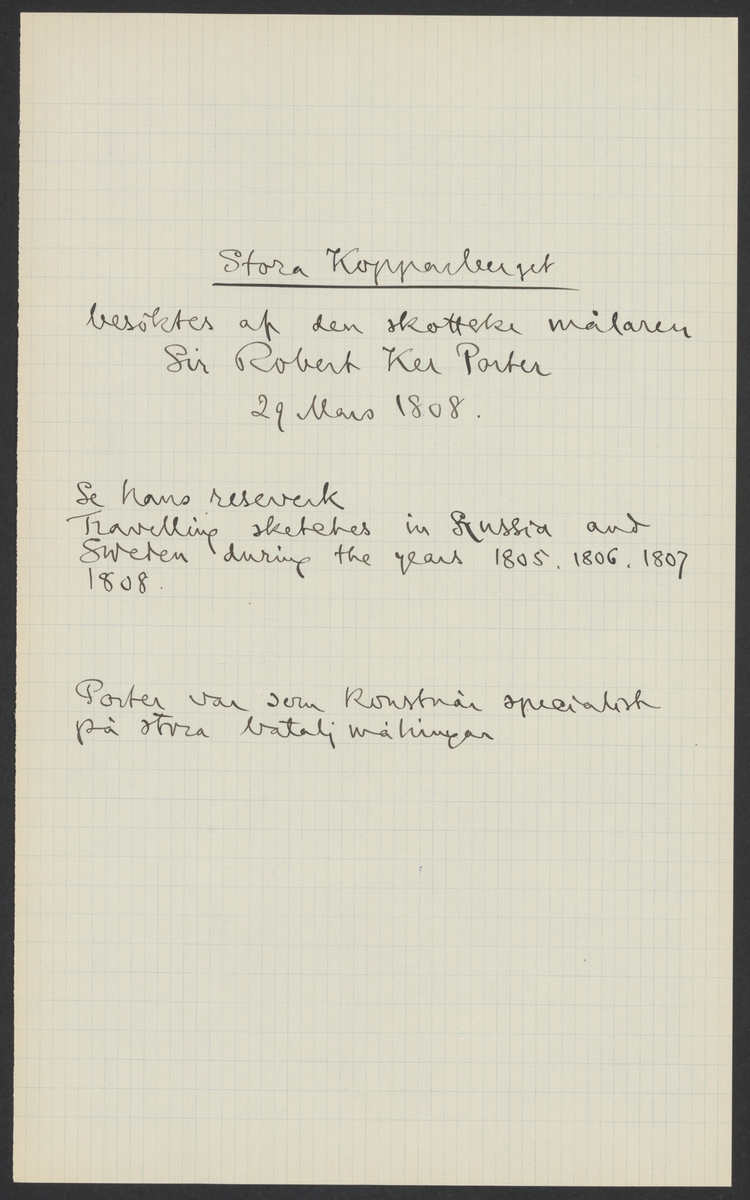 Stora Kopparberget
besöktes af den skottske målaren
Sir Robert Ker Porter
29 Mars 1808.
Se hans reseverk
Travelling sketches in Russia and
Sweden during the years 1805. 1806. 1807
1808.
Porter var som konstnär specialist
på stora batalj målningar